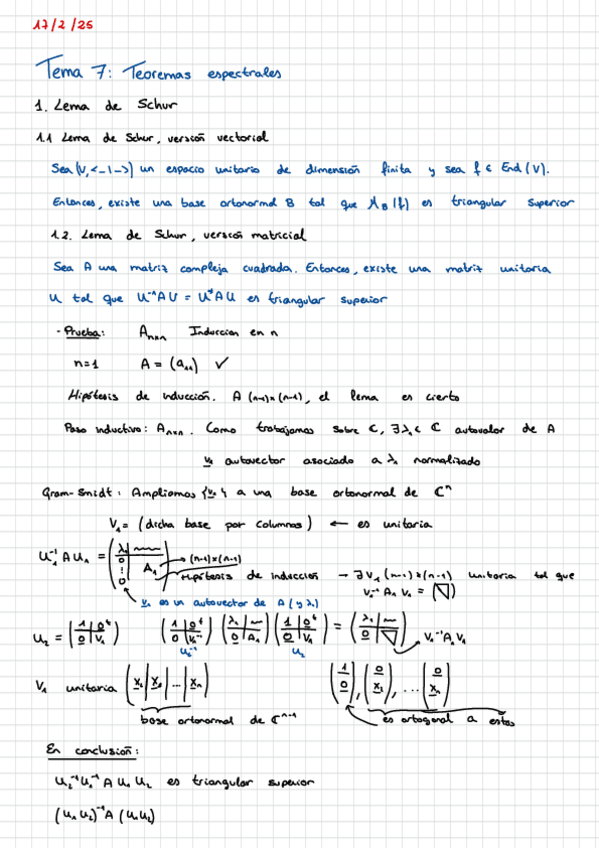 17/2/25
Tema 7: Teoremas espectrales
1. Lema de Schur
1.1 Lema de Schur, versión vectorial
Sea (V, <-|->) un espacio unitario de dimensión finita y sea f ∈ End(V).
Entonces, existe una base ortonormal B tal que M_B(f) es triangular superior
1.2. Lema de Schur, versión matricial
Sea A una matriz compleja cuadrada. Entonces, existe una matriz unitaria
U tal que U⁻¹AU = U*AU es triangular superior
· Prueba: A_{n×n} Inducción en n
n=1 A = (a₁₁) ✓
Hipótesis de inducción. A (n-1)×(n-1), el lema es cierto
Paso inductivo: A_{n×n}. Como trabajamos sobre C, ∃λ₁ ∈ C autovalor de A
v₁ autovector asociado a λ₁ normalizado
Gram-Smidt: Ampliamos {v₁} a una base ortonormal de Cⁿ
V₁ = (dicha base por columnas) ← es unitaria
U₁⁻¹ A U₁ = (λ₁ | 0 ⋮ 0 | A₁) → (n-1)×(n-1)
Hipótesis de inducción → ∃ V₁ (n-1)×(n-1) unitaria tal que
V₁⁻¹ A₁ V₁ = (◥)
v₁ es un autovector de A (y λ₁)
U₂ = (1 | 0ᵗ / 0 | V₁) (1 | 0ᵗ / 0 | V₁⁻¹) (λ₁ | / 0 | A₁) (1 | 0ᵗ / 0 | V₁) = (λ₁ | / 0 | ◥) V₁⁻¹A₁V₁
U₂⁻¹ U₂
V₁ unitaria (x₁ | x₂ | ... | xₙ) (1 / 0), (0 / x₁), ... (0 / xₙ)
base ortonormal de Cⁿ⁻¹ es ortogonal a estos
En conclusión:
U₂⁻¹U₁⁻¹ A U₁ U₂ es triangular superior
(U₁ U₂)⁻¹ A (U₁U₂)